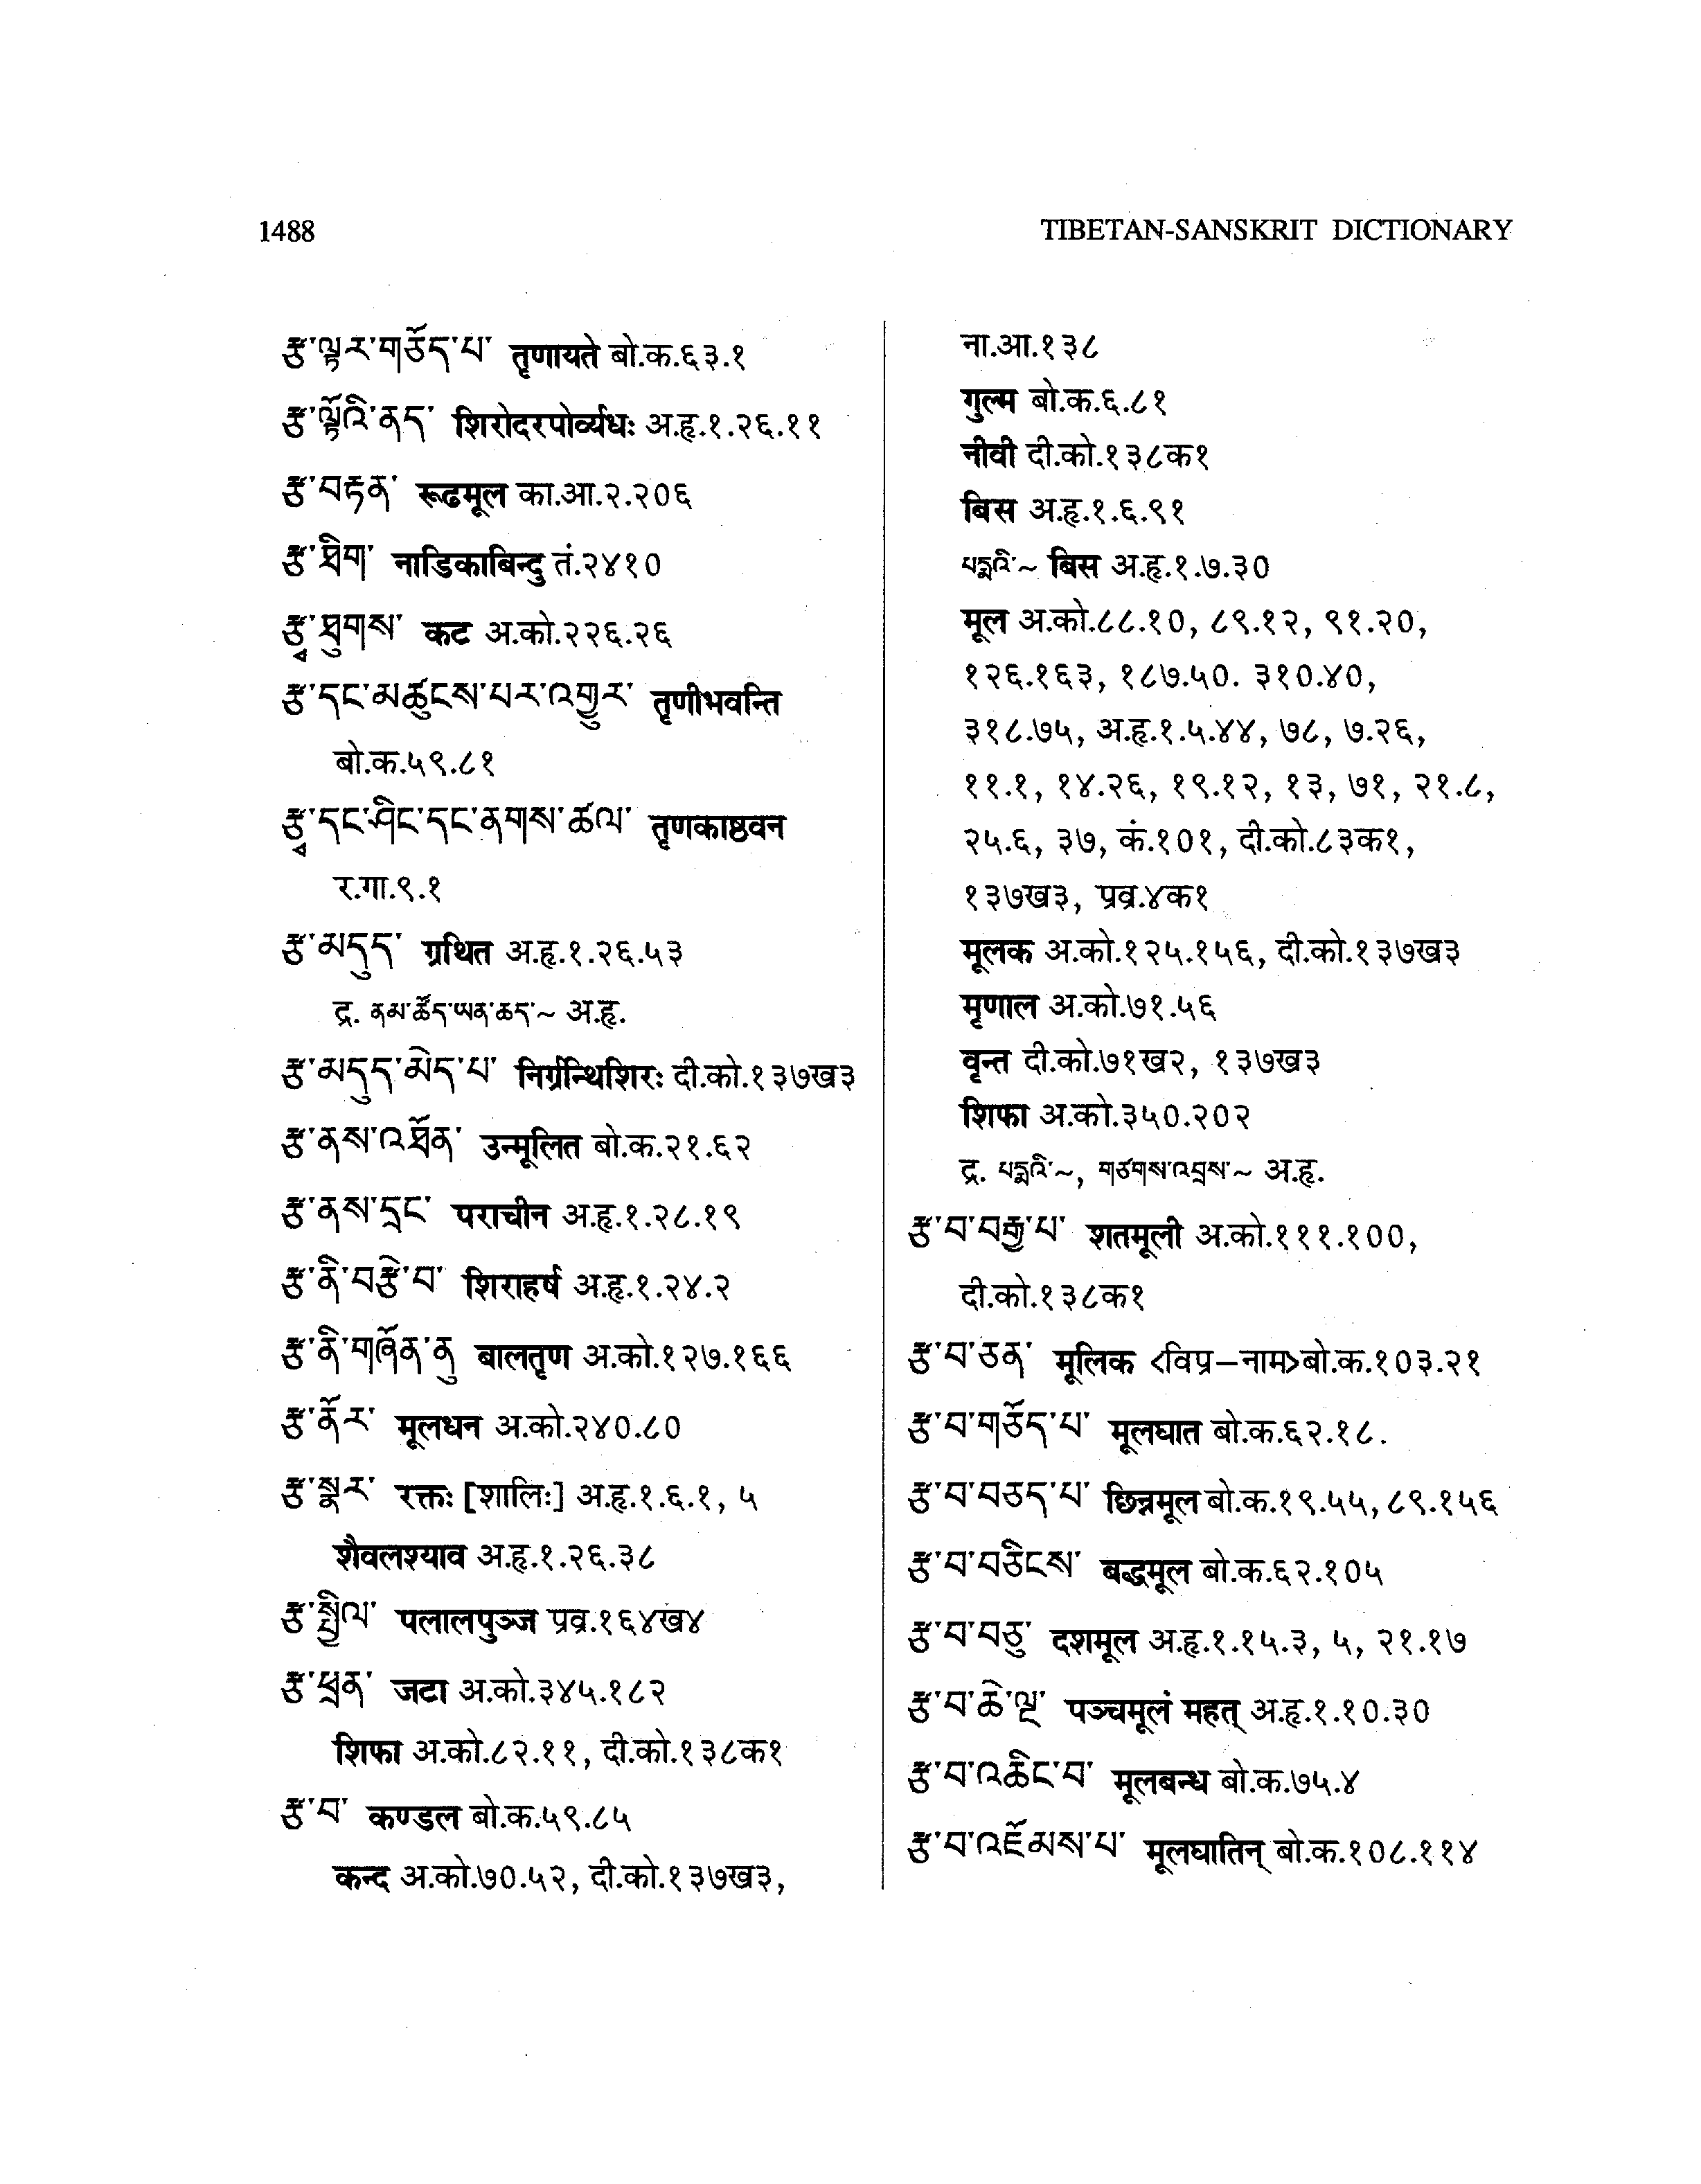 1488
TIBETAN-SANSKRIT DICTIONARY
རྩ་ལྟར་གཅོད་པ་ तृणायते बो.क.६३.१
རྩ་ལྟོའི་ནད་ शिरोदरपोर्व्यधः अ.हृ.१.२६.११
རྩ་བརྟན་ रूढमूल का.आ.२.२०६
རྩ་ཐིག་ नाडिकाबिन्दु तं.२४१०
རྩྭ་ཐུགས་ कट अ.को.२२६.२६
རྩ་དང་མཚུངས་པར་འགྱུར་ तृणीभवन्ति
बो.क.५९.८१
རྩྭ་དང་ཤིང་དང་ནགས་ཚལ་ तृणकाष्ठवन
र.गा.९.१
རྩ་མདུད་ ग्रथित अ.हृ.१.२६.५३
द्र. ནམ་ཚོད་ཡན་ཆད་~ अ.हृ.
རྩ་མདུད་མེད་པ་ निर्ग्रन्थिशिरः दी.को.१३७ख३
རྩ་ནས་འཐོན་ उन्मूलित बो.क.२१.६२
རྩ་ནས་དྲང་ पराचीन अ.हृ.१.२८.१९
རྩ་ནི་བརྩེ་བ་ शिराहर्ष अ.हृ.१.२४.२
རྩ་ནི་གཞོན་ནུ बालतृण अ.को.१२७.१६६
རྩ་ནོར་ मूलधन अ.को.२४०.८०
རྩ་སྣར་ रक्तः [शालिः] अ.हृ.१.६.१, ५
शैवलश्याव अ.हृ.१.२६.३८
རྩ་སྤྱིལ་ पलालपुञ्ज प्रव्र.१६४ख४
རྩ་ཕྲན་ जटा अ.को.३४५.१८२
शिफा अ.को.८२.११, दी.को.१३८क१
རྩ་བ་ कण्डल बो.क.५९.८५
कन्द अ.को.७०.५२, दी.को.१३७ख३,
ना.आ.१३८
गुल्म बो.क.६.८१
नीवी दी.को.१३८क१
बिस अ.हृ.१.६.९१
པདྨའི་~ बिस अ.हृ.१.७.३०
मूल अ.को.८८.१०, ८९.१२, ९१.२०,
१२६.१६३, १८७.५०. ३१०.४०,
३१८.७५, अ.हृ.१.५.४४, ७८, ७.२६,
११.१, १४.२६, १९.१२, १३, ७१, २१.८,
२५.६, ३७, कं.१०१, दी.को.८३क१,
१३७ख३, प्रव्र.४क१
मूलक अ.को.१२५.१५६, दी.को.१३७ख३
मृणाल अ.को.७१.५६
वृन्त दी.को.७१ख२, १३७ख३
शिफा अ.को.३५०.२०२
द्र. པདྨའི་~, གཙགས་འབྲས་~ अ.हृ.
རྩ་བ་བརྒྱ་པ་ शतमूली अ.को.१११.१००,
दी.को.१३८क१
རྩ་བ་ཅན་ मूलिक <विप्र–नाम>बो.क.१०३.२१
རྩ་བ་གཅོད་པ་ मूलघात बो.क.६२.१८.
རྩ་བ་བཅད་པ་ छिन्नमूल बो.क.१९.५५, ८९.१५६
རྩ་བ་བཅིངས་ बद्धमूल बो.क.६२.१०५
རྩ་བ་བཅུ་ दशमूल अ.हृ.१.१५.३, ५, २१.१७
རྩ་བ་ཆེ་ལྔ་ पञ्चमूलं महत् अ.हृ.१.१०.३०
རྩ་བ་འཆིང་བ་ मूलबन्ध बो.क.७५.४
རྩ་བ་འཇོམས་པ་ मूलघातिन् बो.क.१०८.११४